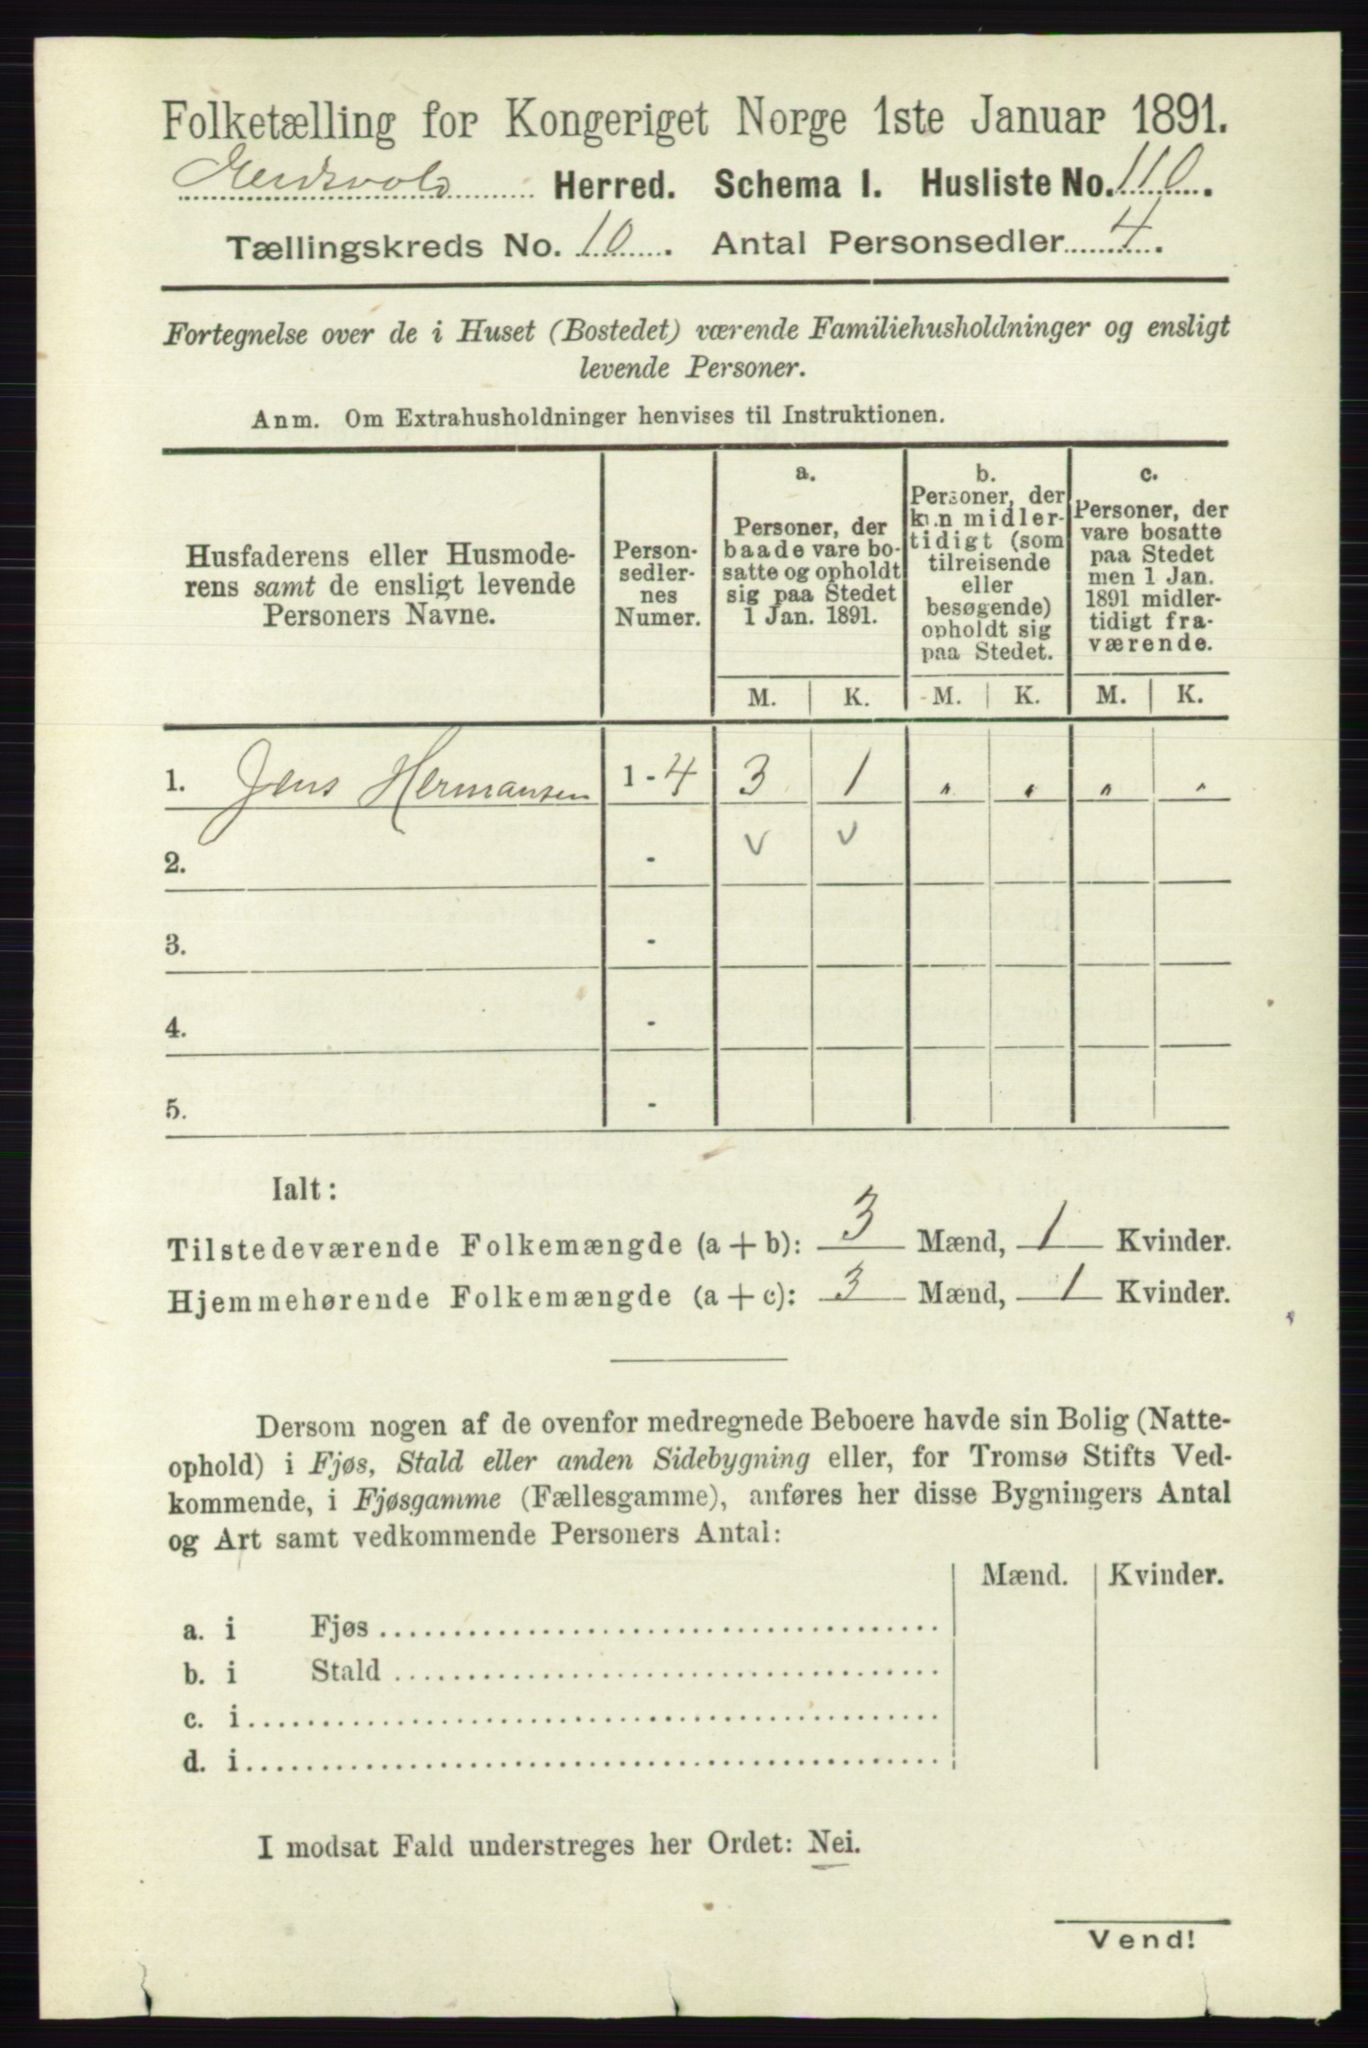 Folketælling for Kongeriget Norge 1ste Januar 1891.
Eidsvold Herred. Schema I. Husliste No. 110.
Tællingskreds No. 10. Antal Personsedler 4.
Fortegnelse over de i Huset (Bostedet) værende Familiehusholdninger og ensligt
levende Personer.
Anm. Om Extrahusholdninger henvises til Instruktionen.
Husfaderens eller Husmode-
rens samt de ensligt levende
Personers Navne.
Person-
sedler-
nes
Numer.
a.
Personer, der
baade vare bo-
satte og opholdt
sig paa Stedet
1 Jan. 1891.
b.
Personer, der
kun midler-
tidigt (som
tilreisende
eller
besøgende)
opholdt sig
paa Stedet.
c.
Personer, der
vare bosatte
paa Stedet
men 1 Jan.
1891 midler-
tidigt fra-
værende.
M. K. M. K. M. K.
1. Jens Hermansen 1 - 4 3 1 " " " "
2. - v v
3. -
4. -
5. -
Ialt:
Tilstedeværende Folkemængde (a + b): 3 Mænd, 1 Kvinder.
Hjemmehørende Folkemængde (a + c): 3 Mænd, 1 Kvinder.
Dersom nogen af de ovenfor medregnede Beboere havde sin Bolig (Natte-
ophold) i Fjøs, Stald eller anden Sidebygning eller, for Tromsø Stifts Ved-
kommende, i Fjøsgamme (Fællesgamme), anføres her disse Bygningers Antal
og Art samt vedkommende Personers Antal:
Mænd. Kvinder.
a. i Fjøs
b. i Stald
c. i
d. i
I modsat Fald understreges her Ordet: Nei.
Vend!